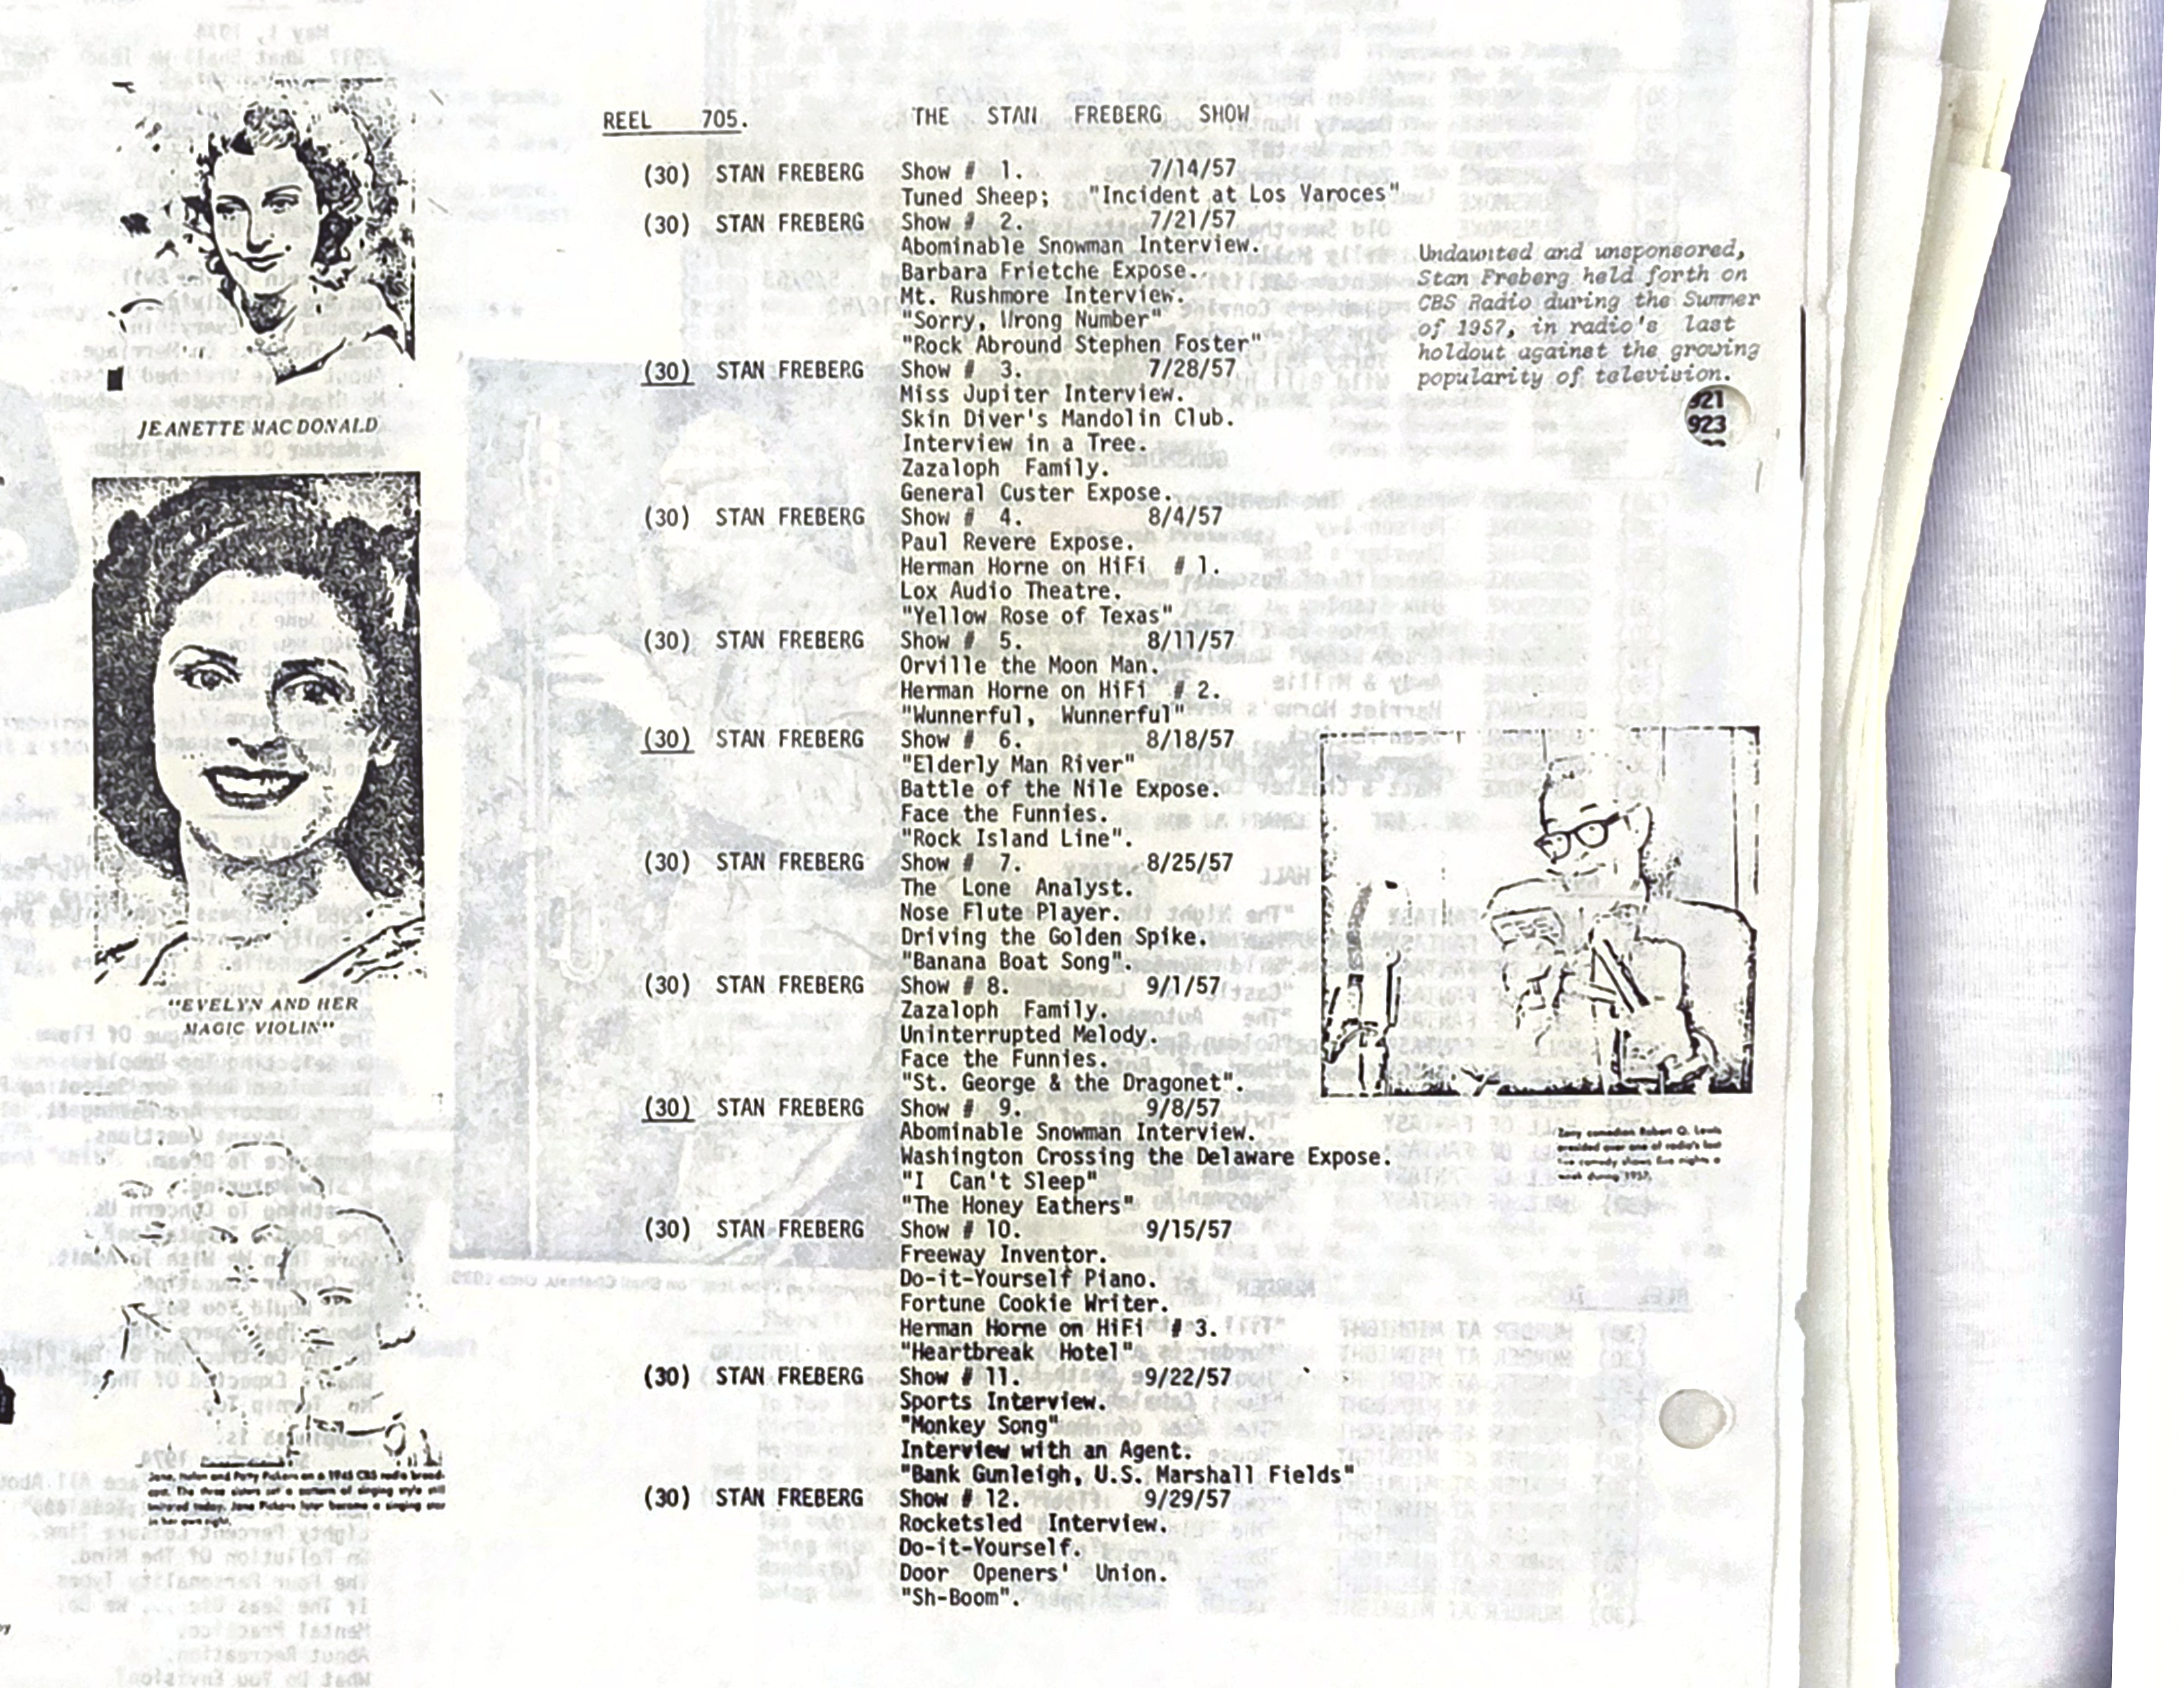 REEL 705. THE STAN FREBERG SHOW
(30) STAN FREBERG Show # 1. 7/14/57
Tuned Sheep; "Incident at Los Varoces"
(30) STAN FREBERG Show # 2. 7/21/57
Abominable Snowman Interview.
Barbara Frietche Expose.
Mt. Rushmore Interview.
"Sorry, Wrong Number"
"Rock Abround Stephen Foster"
(30) STAN FREBERG Show # 3. 7/28/57
Miss Jupiter Interview.
Skin Diver's Mandolin Club.
Interview in a Tree.
Zazaloph Family.
General Custer Expose.
(30) STAN FREBERG Show # 4. 8/4/57
Paul Revere Expose.
Herman Horne on HiFi # 1.
Lox Audio Theatre.
"Yellow Rose of Texas"
(30) STAN FREBERG Show # 5. 8/11/57
Orville the Moon Man.
Herman Horne on HiFi # 2.
"Wunnerful, Wunnerful"
(30) STAN FREBERG Show # 6. 8/18/57
"Elderly Man River"
Battle of the Nile Expose.
Face the Funnies.
"Rock Island Line".
(30) STAN FREBERG Show # 7. 8/25/57
The Lone Analyst.
Nose Flute Player.
Driving the Golden Spike.
"Banana Boat Song".
(30) STAN FREBERG Show # 8. 9/1/57
Zazaloph Family.
Uninterrupted Melody.
Face the Funnies.
"St. George & the Dragonet".
(30) STAN FREBERG Show # 9. 9/8/57
Abominable Snowman Interview.
Washington Crossing the Delaware Expose.
"I Can't Sleep"
"The Honey Eathers"
(30) STAN FREBERG Show # 10. 9/15/57
Freeway Inventor.
Do-it-Yourself Piano.
Fortune Cookie Writer.
Herman Horne on HiFi # 3.
"Heartbreak Hotel"
(30) STAN FREBERG Show # 11. 9/22/57
Sports Interview.
"Monkey Song"
Interview with an Agent.
"Bank Gunleigh, U.S. Marshall Fields"
(30) STAN FREBERG Show # 12. 9/29/57
Rocketsled Interview.
Do-it-Yourself.
Door Openers' Union.
"Sh-Boom".
Undaunted and unsponsored,
Stan Freberg held forth on
CBS Radio during the Summer
of 1957, in radio's last
holdout against the growing
popularity of television.
921
923
Zany comedian Robert Q. Lewis
presided over one of radio's last
live comedy shows five nights a
week during 1957.
JEANETTE MAC DONALD
"EVELYN AND HER
MAGIC VIOLIN"
Jane, Helen and Patty Pickens on a 1945 CBS radio broad-
cast. The three sisters set a pattern of singing style still
imitated today. Jane Pickens later became a singing star
in her own right.